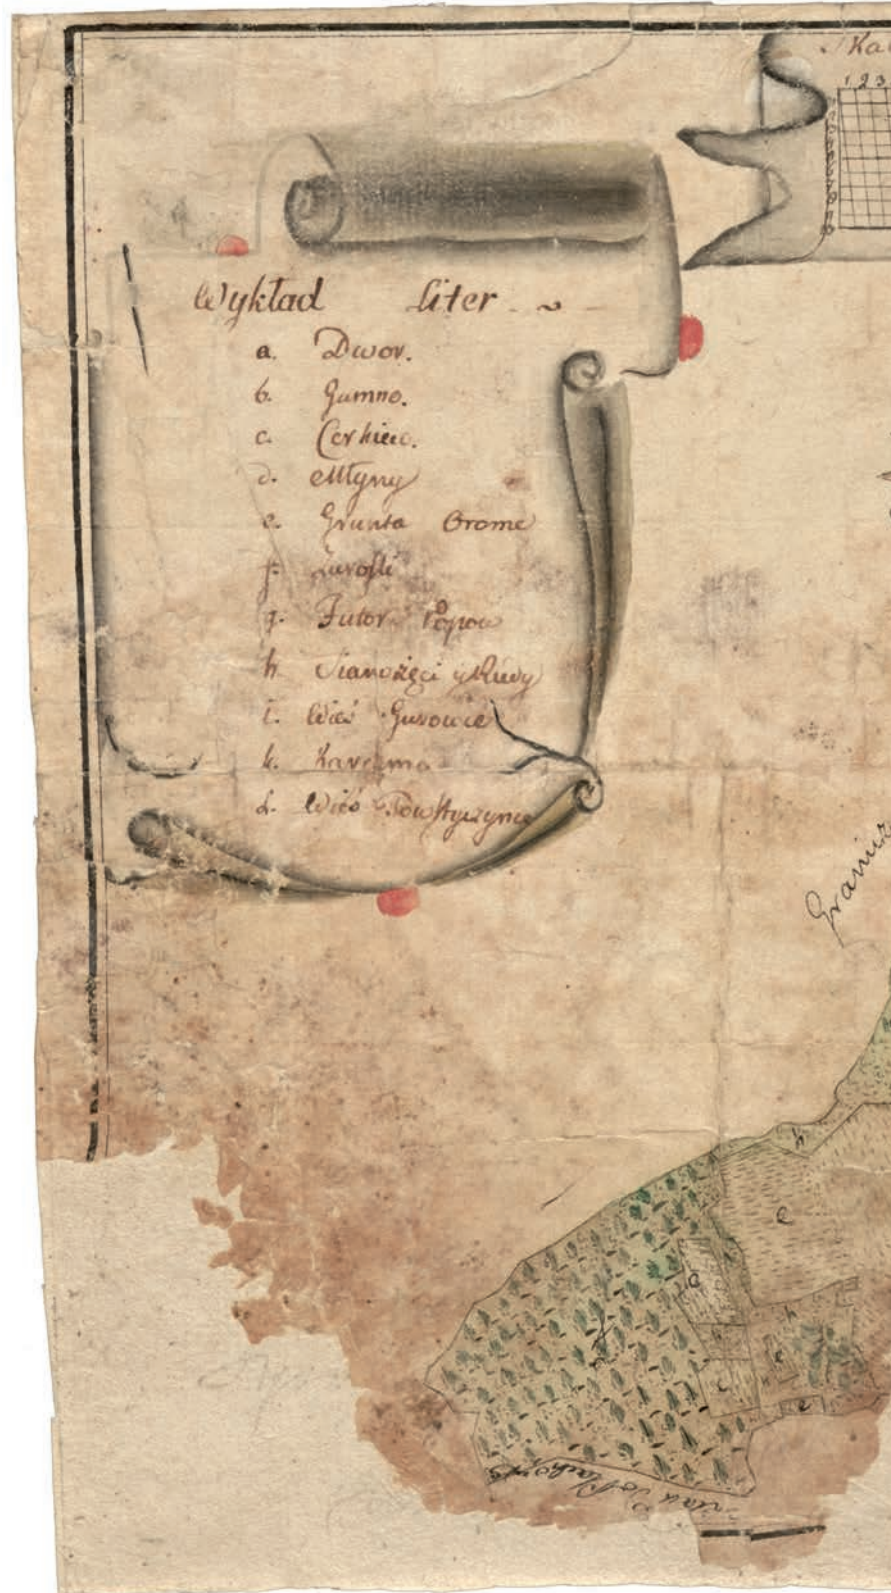 Ska
1 2 3
Wykład Liter
a. Dwor.
b. Gumno.
c. Cerkiew.
d. Młyny
e. Grunta Orome
f. Zarośli
g. Futor Popow
h. Sianożęci y Rudy
i. Wieś Gurowce
k. Karczma
L. Wieś
Granic
h
e
e
h
e
c
e